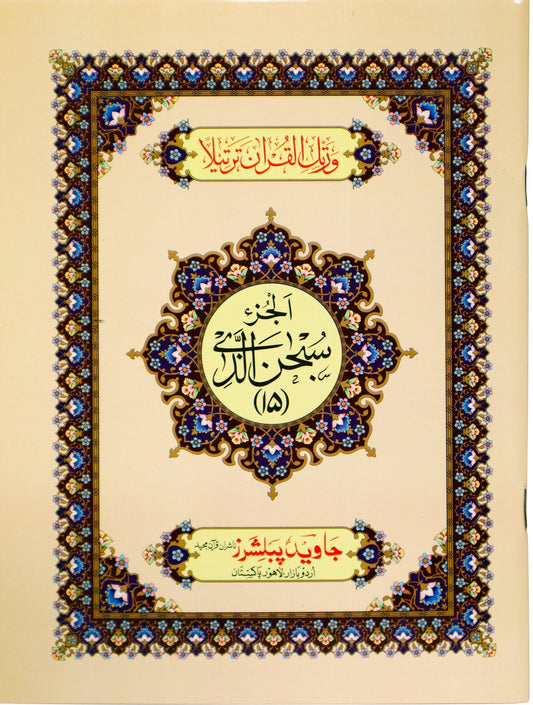 ورتل القرآن ترتیلا
اَلجُزء
سُبْحٰنَ الَّذِیْ
(۱۵)
جاوید پبلشرز ناشران قرآن مجید
اردو بازار، لاہور پاکستان